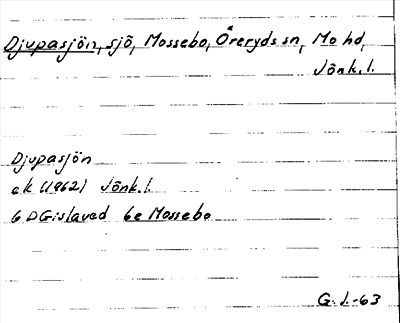 Djupasjön, sjö, Mossebo, Öreryds sn, Mo hd,
Jönk. l.
Djupasjön
ek (1962) Jönk. l.
6 D Gislaved 6e Mossebo
G. L.-63